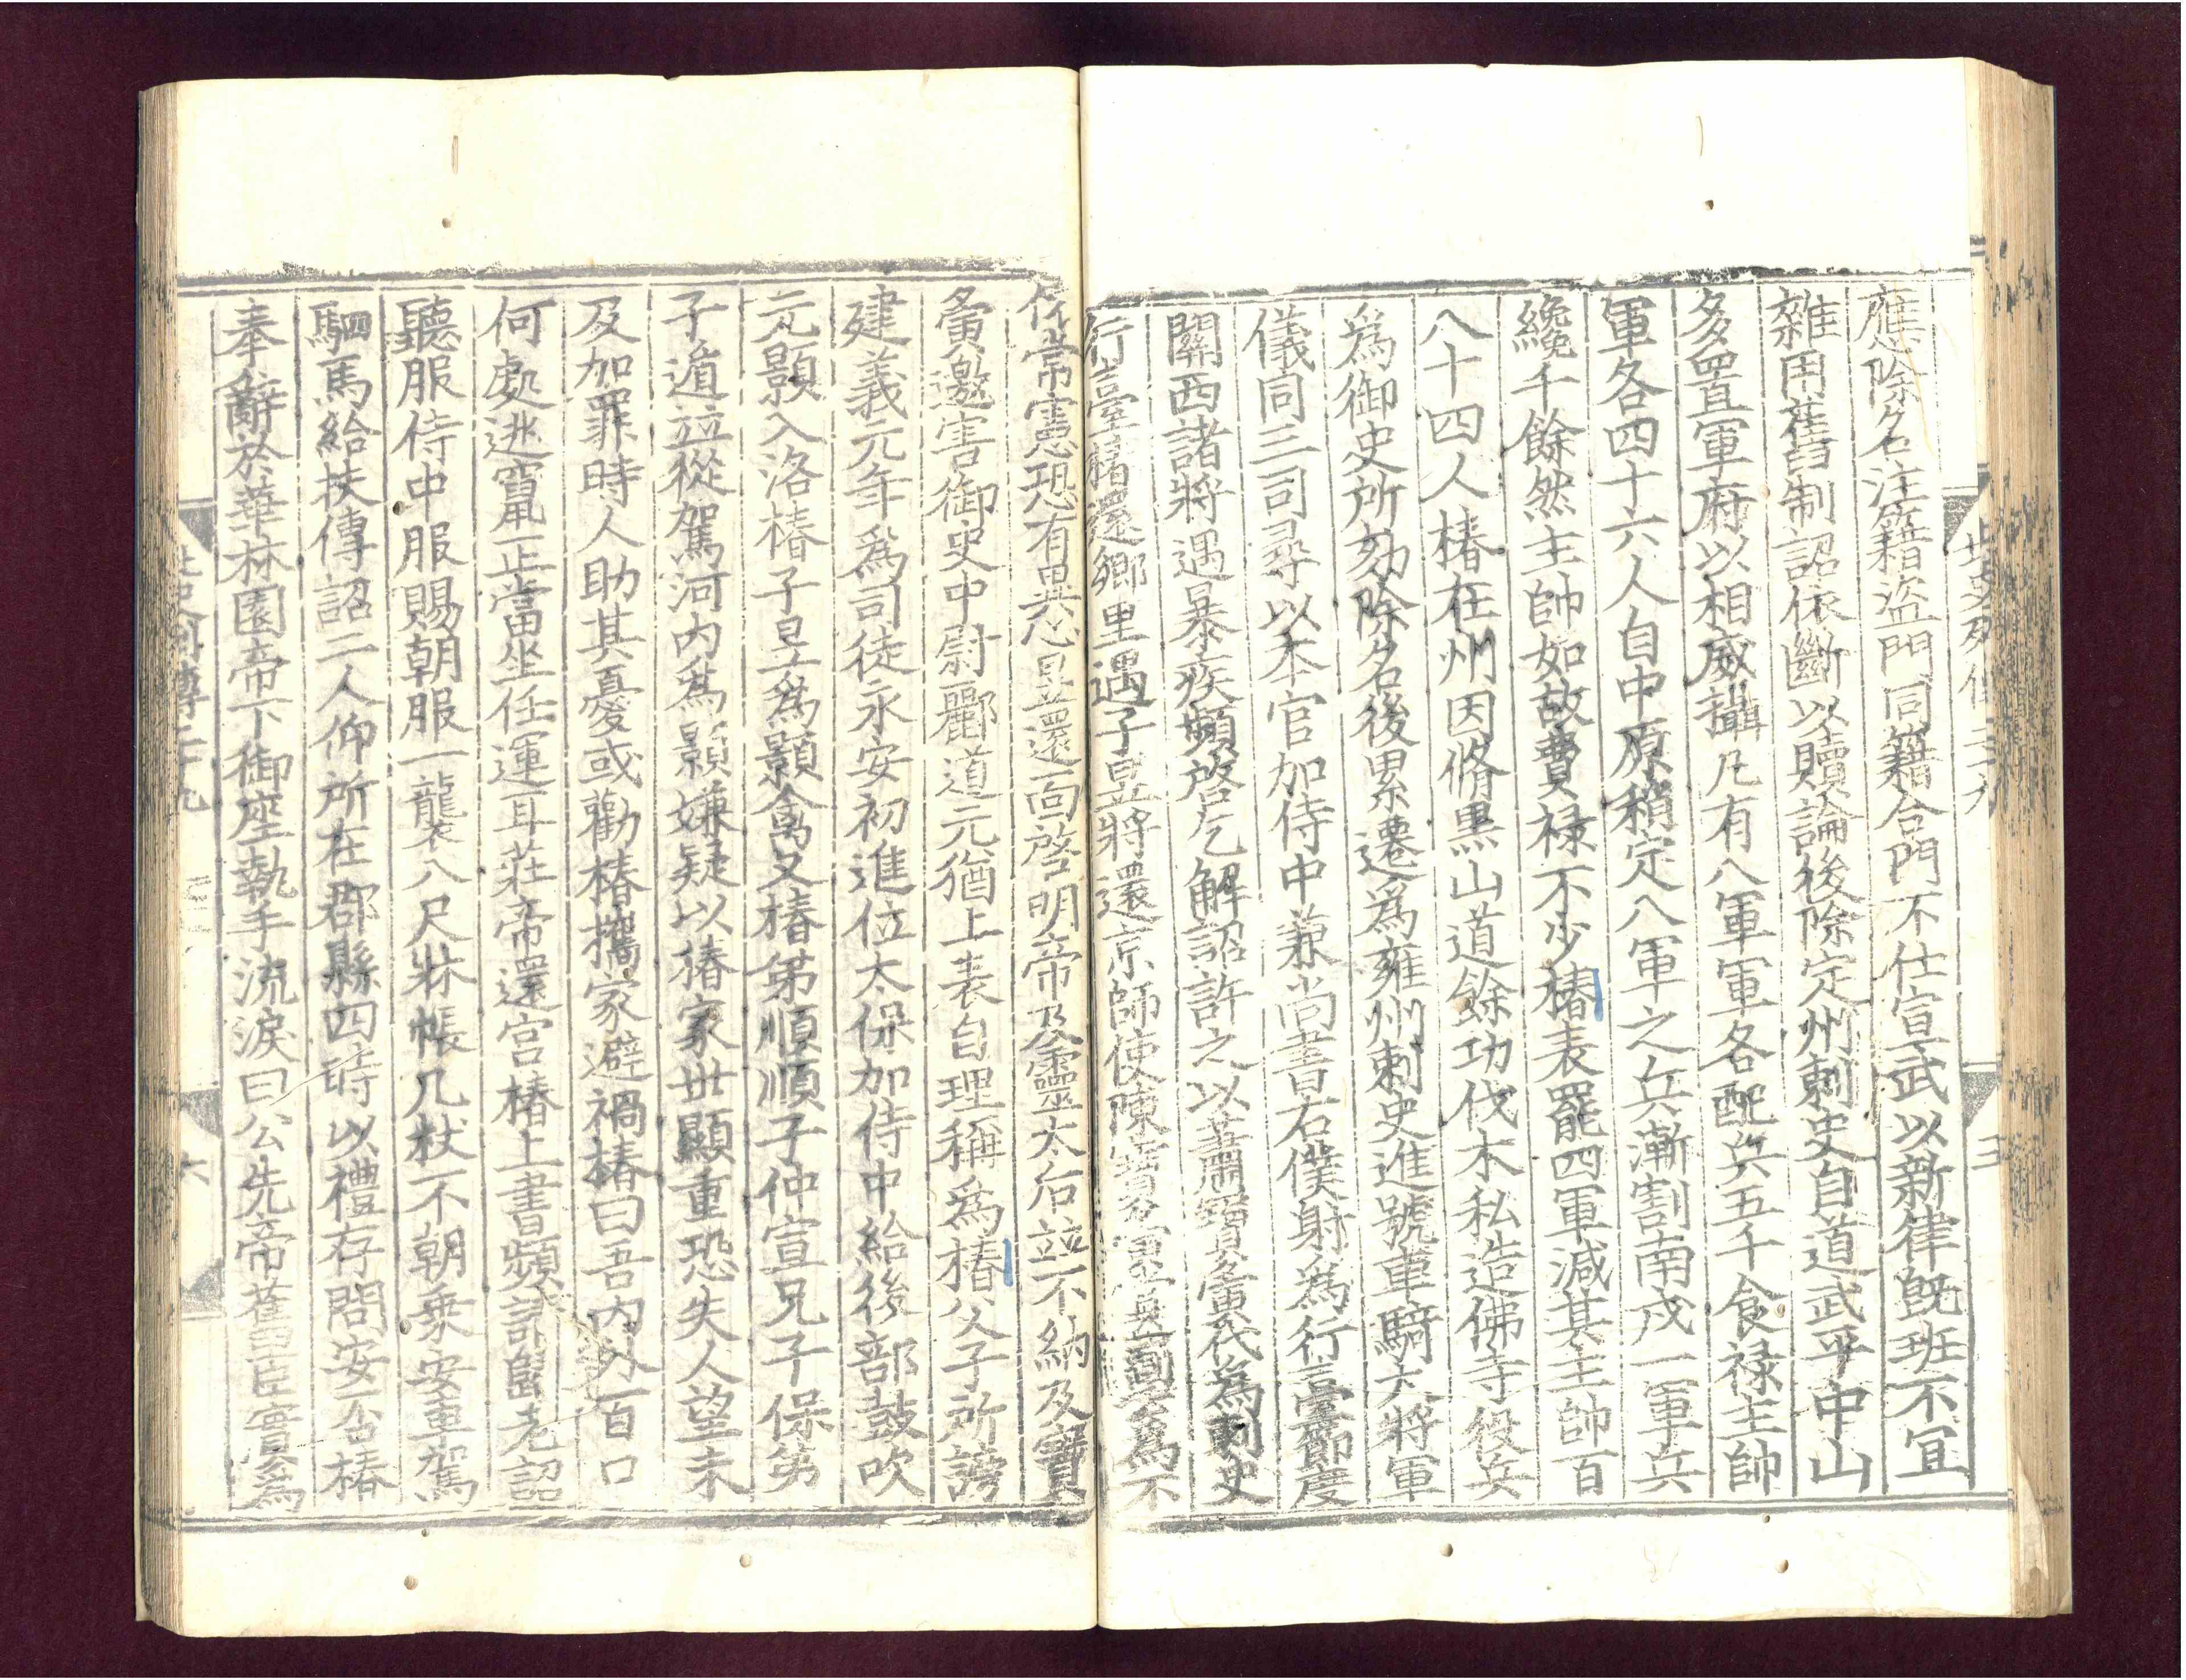 北史列傳二十九 三
應除名注籍盜門同籍合門不仕宣武以新律旣班不宜
雜用舊制詔依斷以贖論後除定州刺史自道武平中山
多置軍府以相威攝凡有八軍軍各配兵五千食祿主帥
軍各四十六人自中原稍定八軍之兵漸割南戍一軍兵
纔千餘然主帥如故費祿不少椿表罷四軍減其主帥百
八十四人椿在州因脩黑山道餘功伐木私造佛寺役兵
爲御史所劾除名後累遷爲雍州刺史進號車騎大將軍
儀同三司尋以本官加侍中兼尚書右僕射爲行臺節度
關西諸將遇暴疾頻啓乞解詔許之以蕭寶夤代爲刺史
行臺椿還鄉里遇子昱將還京師使陳寶夤賞罰爲不
依常憲恐有異心昱還面啓明帝及靈太后竝不納及寶
夤邀害御史中尉酈道元猶上表自理稱爲椿父子所謗
建義元年爲司徒永安初進位太保加侍中給後部鼓吹
元顥入洛椿子昱爲顥禽又椿弟順順子仲宣兄子保弟
子遁竝從駕河內爲顥嫌疑以椿家世顯重恐失人望未
及加罪時人助其憂或勸椿攜家避禍椿曰吾內外百口
何處逃竄正當坐任運耳莊帝還宮椿上書頻請歸老詔
聽服侍中服賜朝服一襲八尺牀帳几杖不朝乘安車駕
駟馬給扶傳詔二人仰所在郡縣四時以禮存問安否椿
奉辭於華林園帝下御座執手流淚曰公先帝舊臣實爲
北史列傳二十九 六